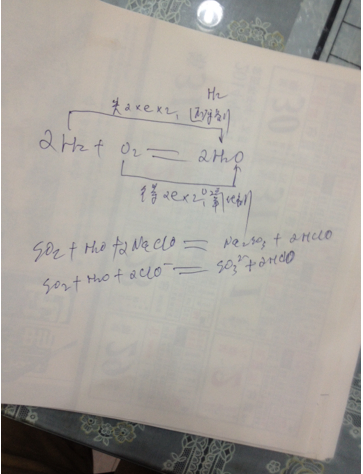 H₂
失2xex2,
2H₂ + O₂ = 2H₂O
得2ex2,
SO₂ + H₂O + 2NaClO = Na₂SO₃ + 2HClO
SO₂ + H₂O + 2ClO⁻ = SO₃²⁻ + 2HClO